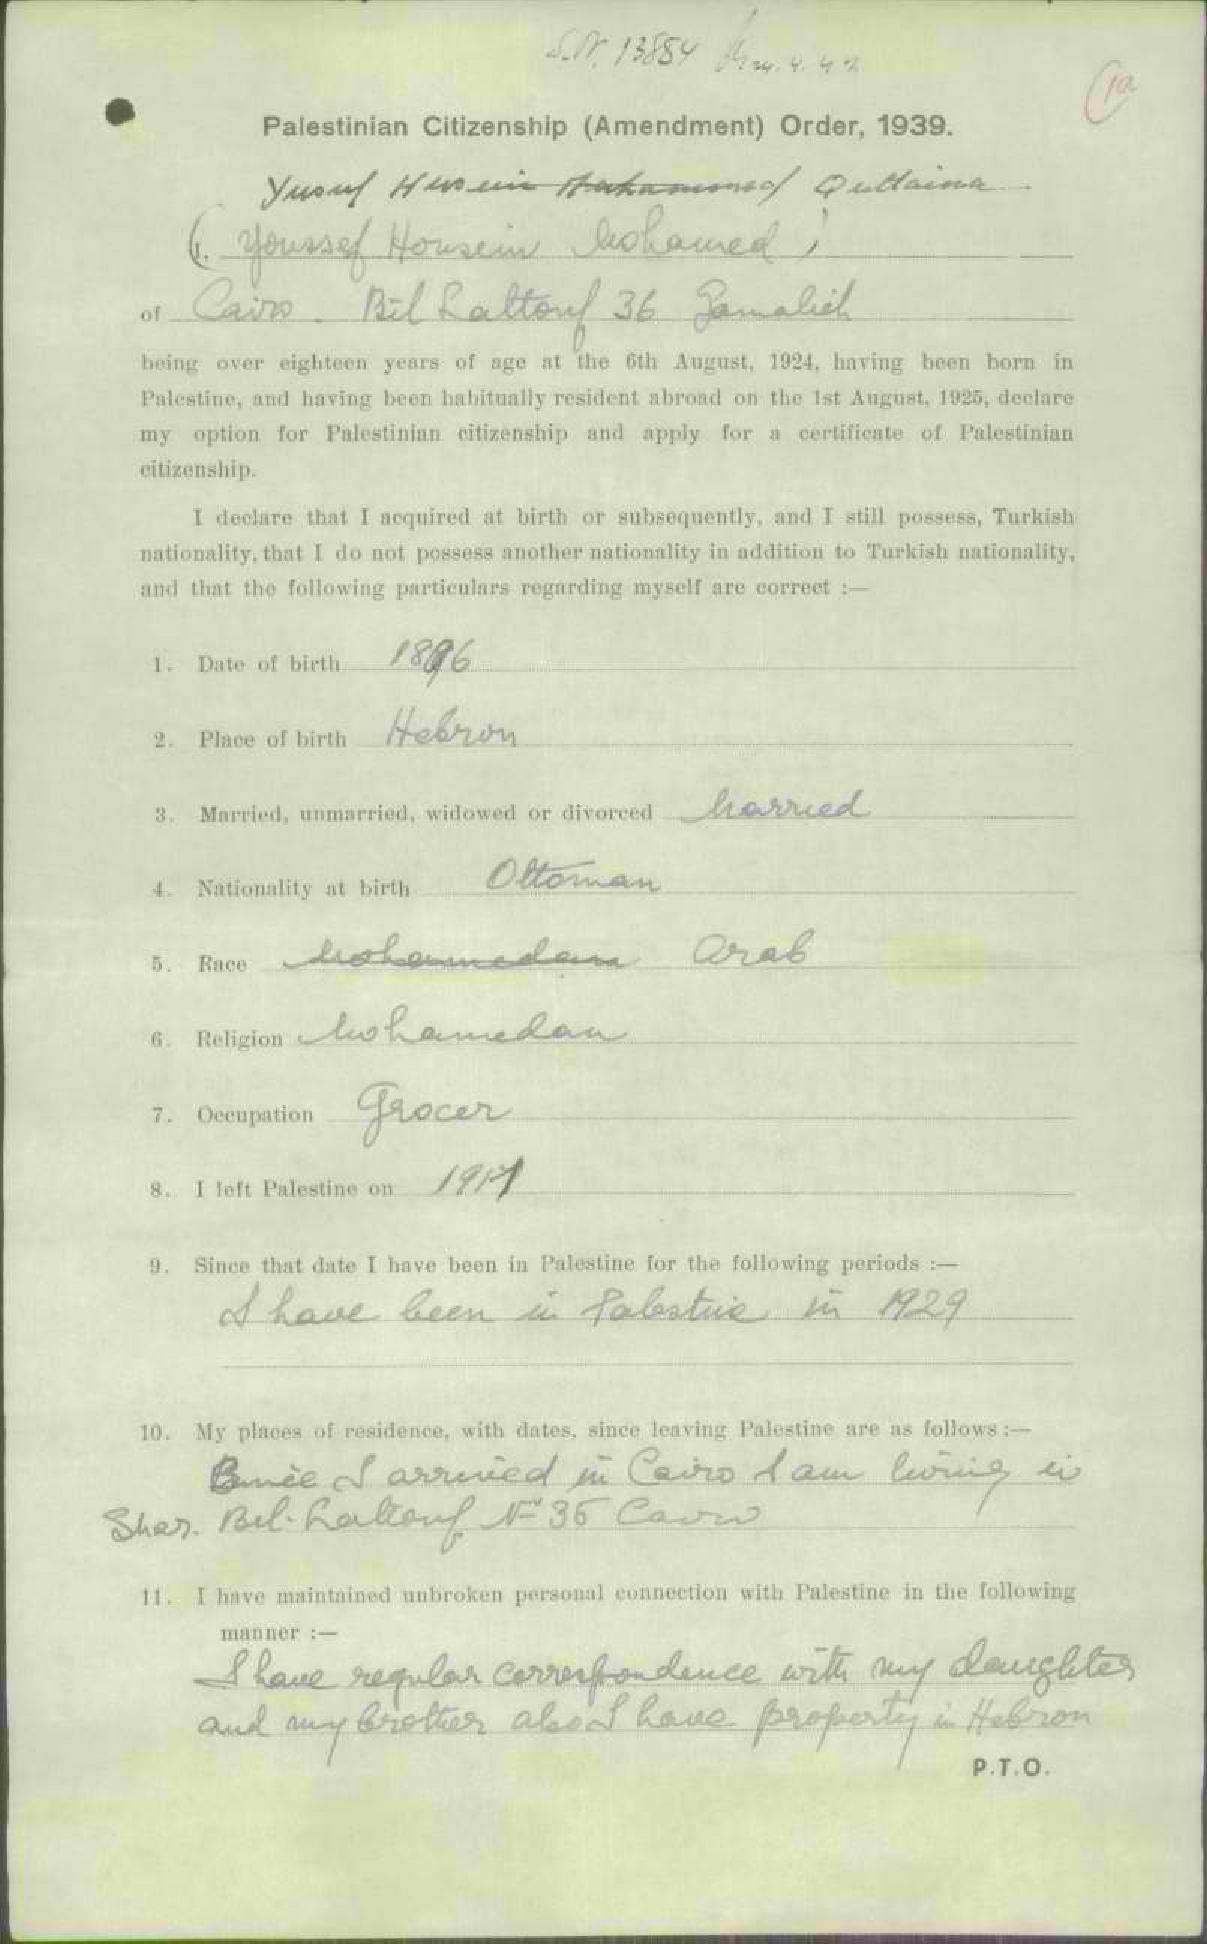 S.N. 13884
1a
Palestinian Citizenship (Amendment) Order, 1939.
Yusuf Husein Mohammed Quttaina
(I. Youssef Housein Mohamed)
of Cairo. Bil Laltouf 36 Gamalieh
being over eighteen years of age at the 6th August, 1924, having been born in
Palestine, and having been habitually resident abroad on the 1st August, 1925, declare
my option for Palestinian citizenship and apply for a certificate of Palestinian
citizenship.
I declare that I acquired at birth or subsequently, and I still possess, Turkish
nationality, that I do not possess another nationality in addition to Turkish nationality,
and that the following particulars regarding myself are correct :—
1. Date of birth 1896
2. Place of birth Hebron
3. Married, unmarried, widowed or divorced Married
4. Nationality at birth Ottoman
5. Race Mohammedan Arab
6. Religion Mohamedan
7. Occupation Grocer
8. I left Palestine on 1917
9. Since that date I have been in Palestine for the following periods :—
I have been in Palestine in 1929
10. My places of residence, with dates, since leaving Palestine are as follows :—
Since I arrived in Cairo I am living in
Shar. Bel-Laltouf No 36 Cairo
11. I have maintained unbroken personal connection with Palestine in the following
manner :—
I have regular correspondence with my daughter
and my brother also I have property in Hebron
P.T.O.